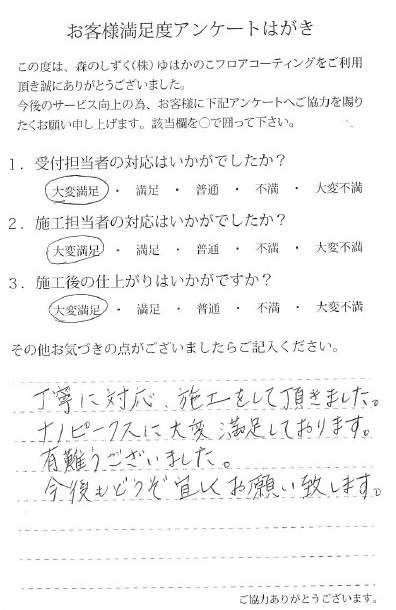 お客様満足度アンケートはがき
この度は、森のしずく(株)ゆはかのこフロアコーティングをご利用
頂き誠にありがとうございました。
今後のサービス向上の為、お客様に下記アンケートへご協力を賜り
たくお願い申し上げます。該当欄を○で囲って下さい。
1．受付担当者の対応はいかがでしたか？
大変満足 ・ 満足 ・ 普通 ・ 不満 ・ 大変不満
2．施工担当者の対応はいかがでしたか？
大変満足 ・ 満足 ・ 普通 ・ 不満 ・ 大変不満
3．施工後の仕上がりはいかがですか？
大変満足 ・ 満足 ・ 普通 ・ 不満 ・ 大変不満
その他お気づきの点がございましたらご記入ください。
丁寧に対応、施工をして頂きました。
ナノピークスに大変満足しております。
有難うございました。
今後もどうぞ宜しくお願い致します。
ご協力ありがとうございます。